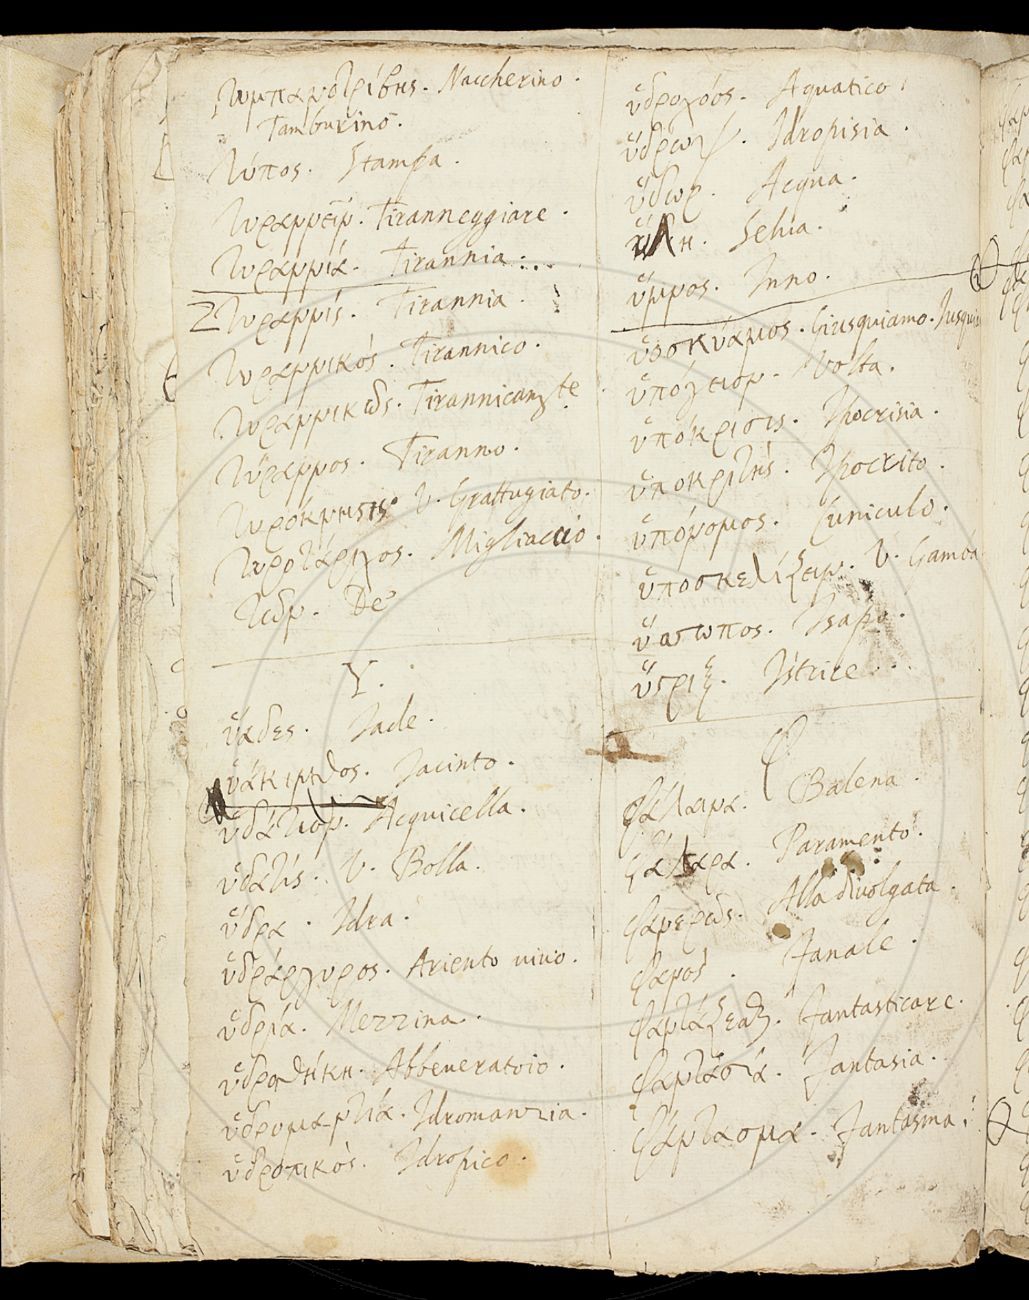 τυμπανοτρίβης. Naccherino.
Tamburino.
τύπος. Stampa.
τυραννεῖν. Tiranneggiare.
τυραννία. Tirannia.
τυραννίς. Tirannia.
τυραννικός. Tirannico.
τυραννικῶς. Tirannicamte
τύραννος. Tiranno.
τυρόκνησις V. Grattugiato.
τυροτάριχος. Migliaccio.
τῶν. De'
Υ.
ὑάδες. Iade.
ὑάκινθος. Iacinto.
ὑδάτιον. Acquicella.
ὑδατίς. V. Bolla.
ὕδρα. Idra.
ὑδράργυρος. Ariento vivo.
ὑδρία. Mezzina.
ὑδροθήκη. Abbeveratoio.
ὑδρομαντία. Idromanzia.
ὑδροπικός. Idropico.
ὑδρολοός. Aquatico.
ὕδρωψ. Idropisia.
ὕδωρ. Acqua.
ὕλη. Selua.
ὕμνος. Inno.
ὑοσκύαμος. Giusquiamo.
ὑπόλειον. Volta.
ὑπόκρισις. Ipocrisia.
ὑποκριτής. Ipocrito.
ὑπόνομος. Cuniculo.
ὑποσκελίζειν. V. Gamba
ὕσσωπος. Isapo.
ὕστριξ. Istrice.
φ
φάλαινα. Balena.
φάλαρα. Paramento.
φανερῶς. Alla divolgata.
φανός. Fanale.
φαντάζεσθαι. Fantasticare.
φαντασία. Fantasia.
φάντασμα. Fantasma.